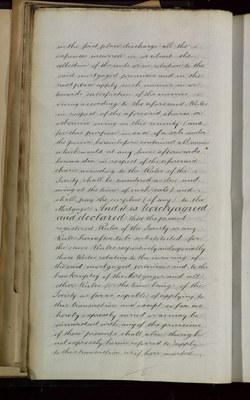 in the first place discharge all the
expenses incurred in or about the
collection of the rents or in relation to the
said mortgaged premises and in the
next place apply such monies in or
towards satisfaction of the monies
owing according to the aforesaid Rules
in respect of the aforesaid shares or
otherwise owing on this security (and
for this purpose in case of a sale under
the power hereinbefore contained all monies
which would at any time afterwards
become due in respect of the aforesaid
shares according to the Rules of the
Society shall be considered as due and
owing at the time of such sale) and
shall pay the surplus (if any) to the
Mortgagor And it is hereby agreed
and declared that the present
registered Rules of the Society or any
Rules hereafter to be substituted for
the same Rules respectively and especially
those Rules relating to the insuring of
the said mortgaged premises and to the
bankruptcy of the Mortgagor and all
other Rules for the time being of the
Society so far as capable of applying to
this transaction and except so far as
hereby expressly varied or as may be
inconsistent with any of the provisions
of these presents shall although
not expressly herein referred to apply
to this transaction as if here inserted